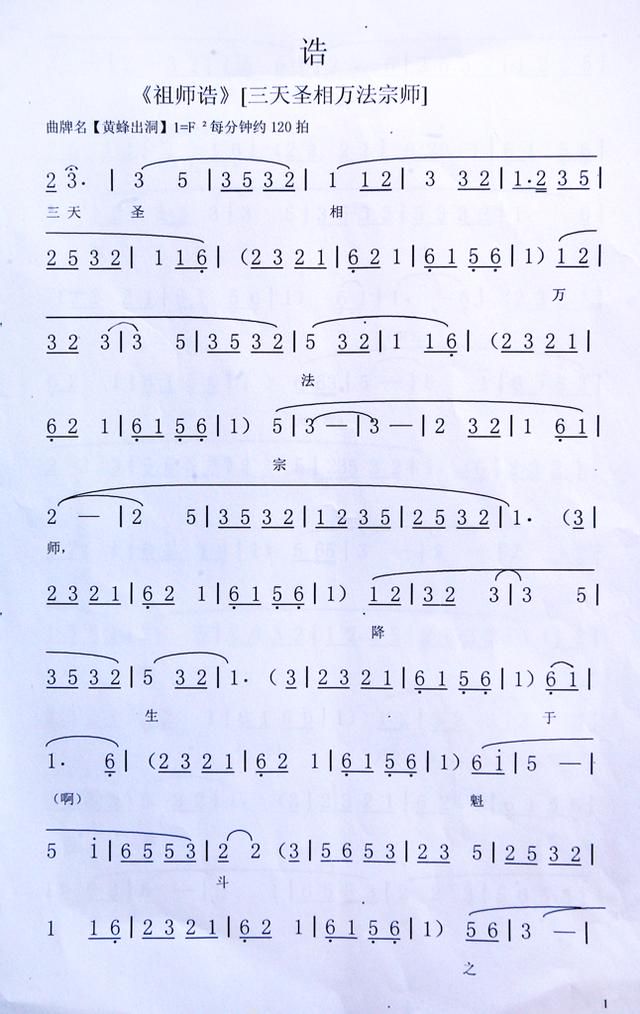 诰
《祖师诰》[三天圣相万法宗师]
曲牌名【黄蜂出洞】1=F 2 每分钟约 120 拍
2 3· | 3 5 | 3 5 3 2 | 1 1 2 | 3 3 2 | 1·2 3 5 |
三 天 圣 相
2 5 3 2 | 1 1 6̣ | (2 3 2 1 | 6̣ 2 1 | 6̣ 1 5̣ 6̣ | 1) 1 2 |
万
3 2 3 | 3 5 | 3 5 3 2 | 5 3 2 | 1 1 6̣ | (2 3 2 1 |
法
6̣ 2 1 | 6̣ 1 5̣ 6̣ | 1) 5 | 3 — | 3 — | 2 3 2 | 1 6̣ 1 |
宗
2 — | 2 5 | 3 5 3 2 | 1 2 3 5 | 2 5 3 2 | 1· (3 |
师,
2 3 2 1 | 6̣ 2 1 | 6̣ 1 5̣ 6̣ | 1) 1 2 | 3 2 3 | 3 5 |
降
3 5 3 2 | 5 3 2 | 1· (3 | 2 3 2 1 | 6̣ 2 1 | 6̣ 1 5̣ 6̣ | 1) 6̣ 1 |
生 于
1· 6̣ | (2 3 2 1 | 6̣ 2 1 | 6̣ 1 5̣ 6̣ | 1) 6 i | 5 — |
(啊) 魁
5 i | 6 5 5 3 | 2 2 (3 | 5 6 5 3 | 2 3 5 | 2 5 3 2 |
斗
1 1 6̣ | 2 3 2 1 | 6̣ 2 1 | 6̣ 1 5̣ 6̣ | 1) 5 6 | 3 — |
之
1